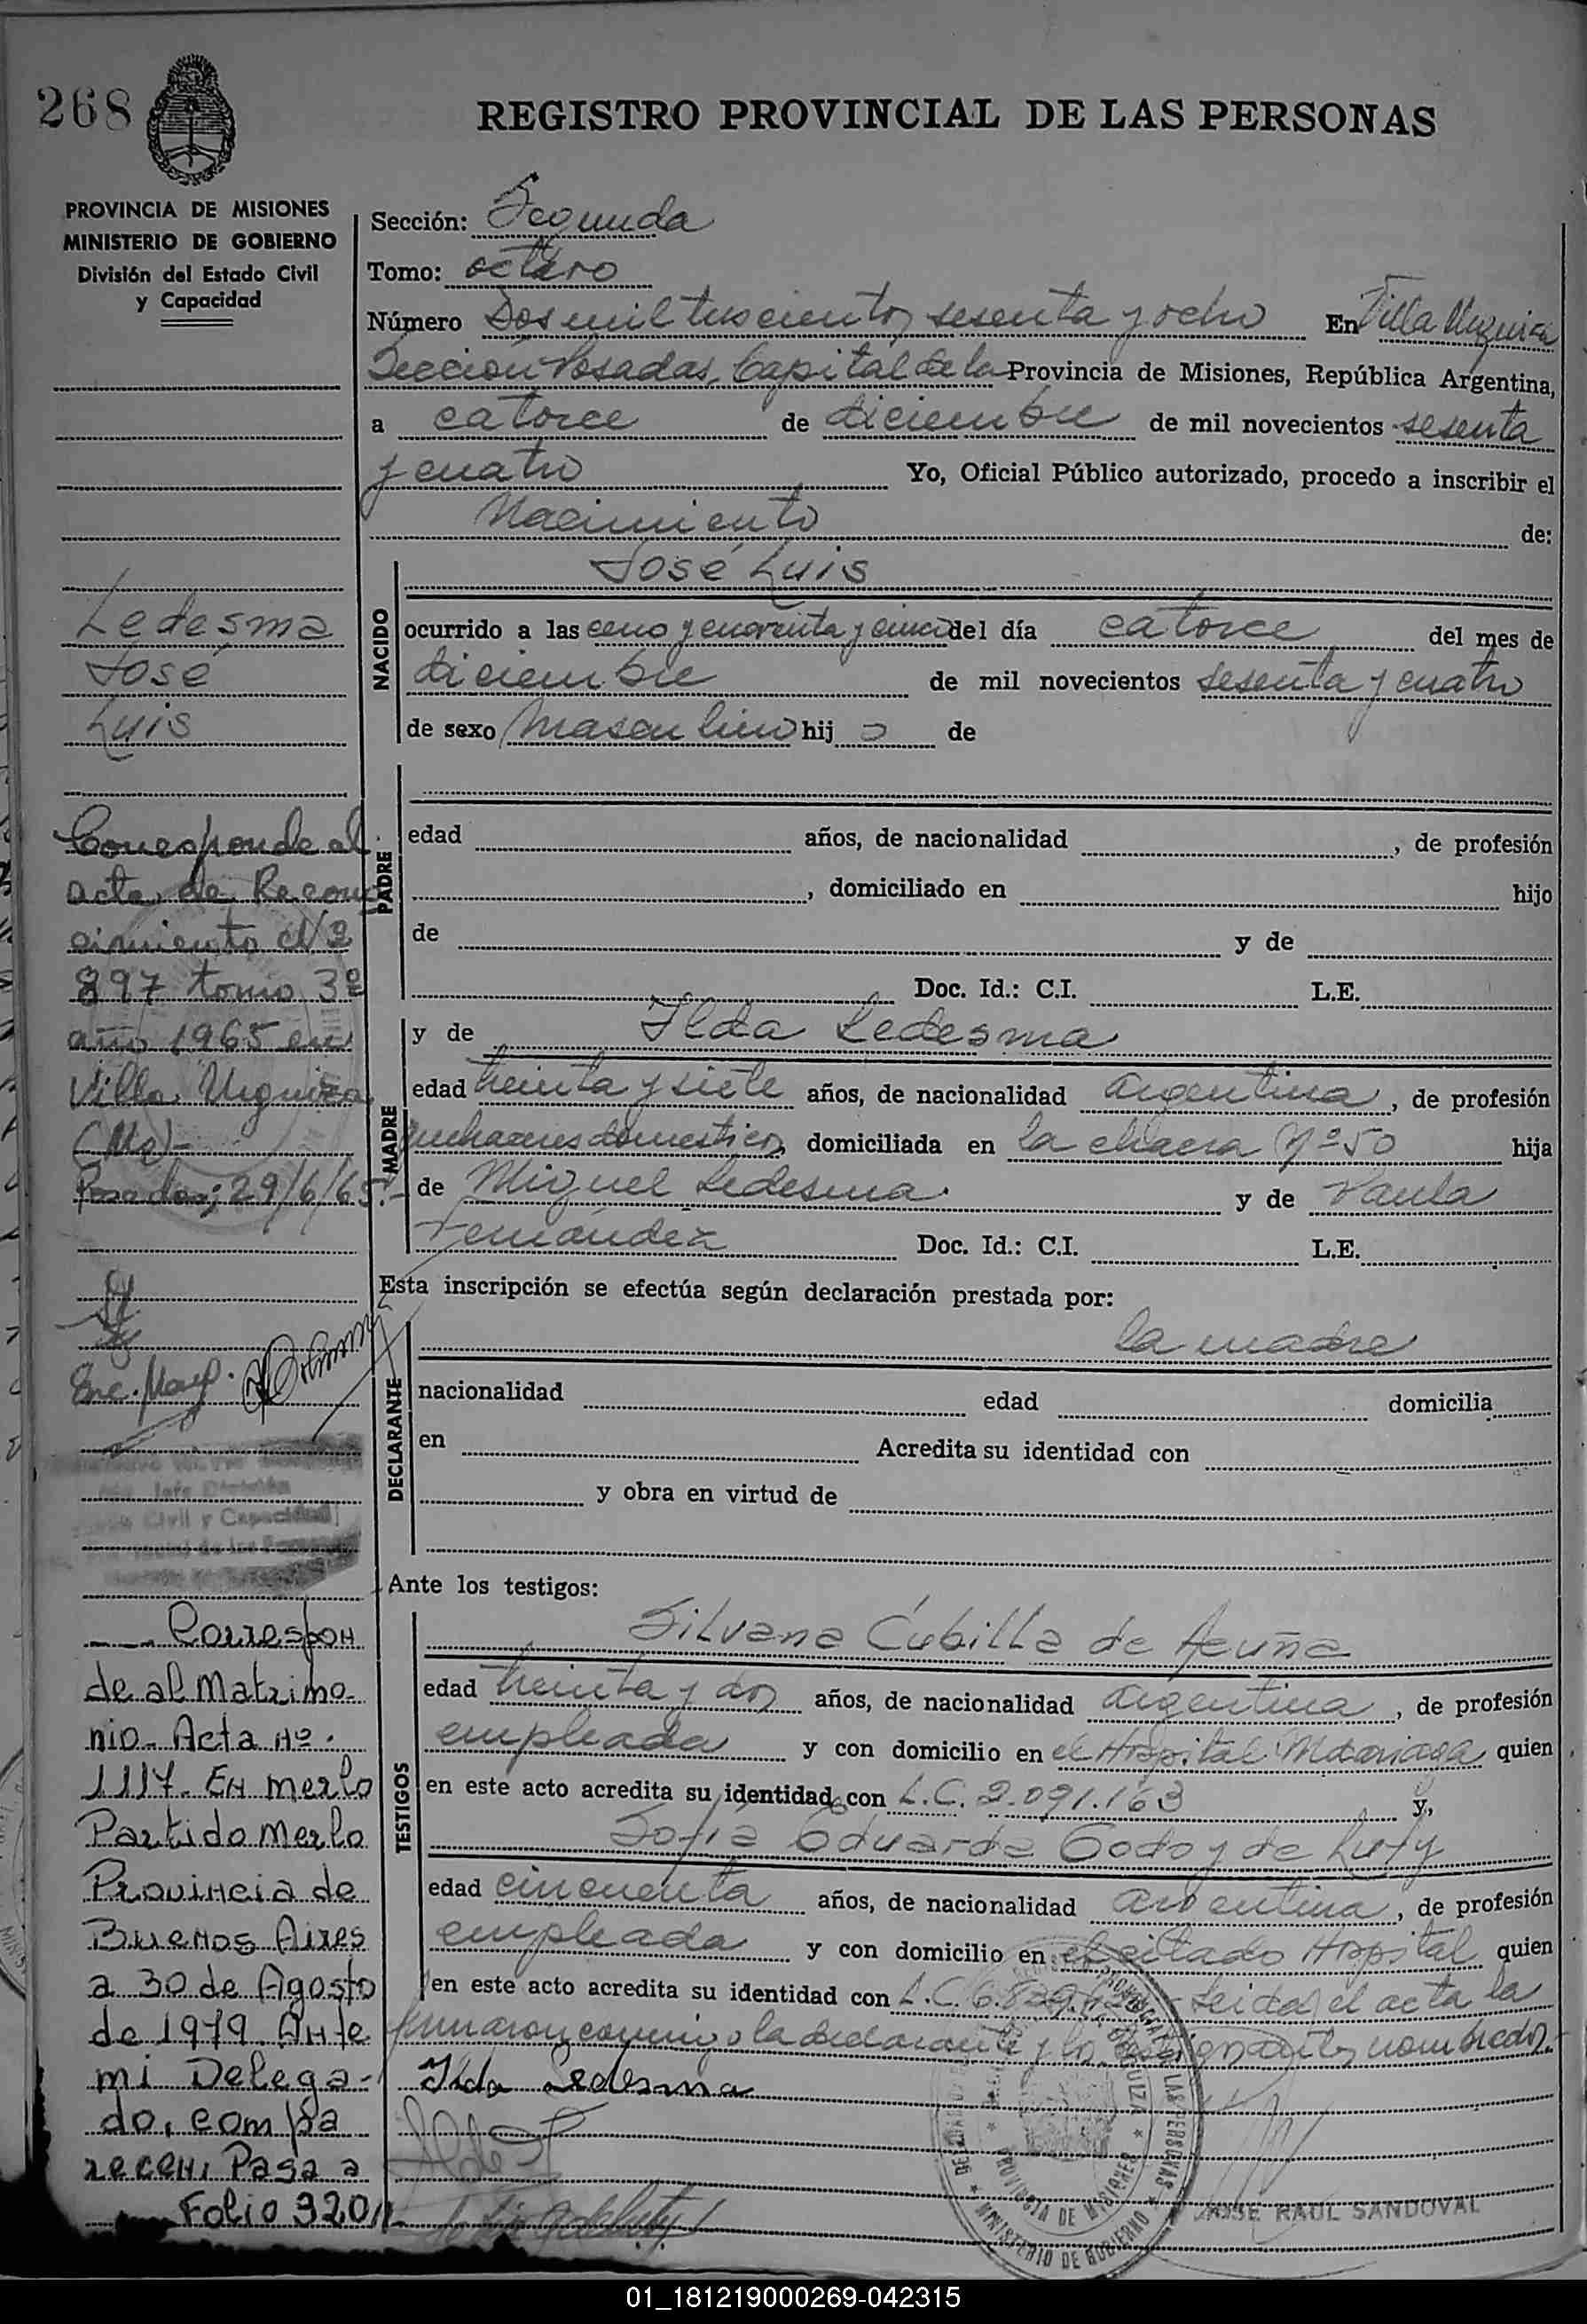 268
REGISTRO PROVINCIAL DE LAS PERSONAS
PROVINCIA DE MISIONES
MINISTERIO DE GOBIERNO
División del Estado Civil
y Capacidad
Sección: Segunda
Tomo: octavo
Número Dos mil trescientos sesenta y ocho En Villa Urquiza
Sección Posadas, Capital de la Provincia de Misiones, República Argentina,
a catorce de diciembre de mil novecientos sesenta
y cuatro Yo, Oficial Público autorizado, procedo a inscribir el
Nacimiento de:
NACIDO
José Luis
ocurrido a las cero y cuarenta y cinco del día catorce del mes de
diciembre de mil novecientos sesenta y cuatro
de sexo Masculino hijo de
PADRE
edad años, de nacionalidad , de profesión
, domiciliado en hijo
de y de
Doc. Id.: C.I. L.E.
MADRE
y de Ilda Ledesma
edad treinta y siete años, de nacionalidad argentina, de profesión
quehaceres domesticos, domiciliada en la chacra Nº 50 hija
de Miguel Ledesma y de Paula
Fernández Doc. Id.: C.I. L.E.
Esta inscripción se efectúa según declaración prestada por:
DECLARANTE
la madre
nacionalidad edad domicilia
en Acredita su identidad con
y obra en virtud de
Ante los testigos:
TESTIGOS
Silvana Cubilla de Acuña
edad treinta y dos años, de nacionalidad argentina, de profesión
empleada y con domicilio en el Hospital Madariaga quien
en este acto acredita su identidad con L.C. 2.091.163 y,
Sofia Eduarda Godoy de
edad cincuenta años, de nacionalidad argentina, de profesión
empleada y con domicilio en el citado Hospital quien
en este acto acredita su identidad con L.C. Leida el acta la
firmaron conmigo la declarante y los testigos antes nombrados.
Ilda Ledesma
JOSE RAUL SANDOVAL
DE LAS PERSONAS
PROVINCIA DE MISIONES
MINISTERIO DE GOBIERNO
Ledesma
José
Luis
Corresponde al
acta de Recono
cimiento Nº
897 tomo 3º
año 1965 en
Villa Urquiza
(Ms)-
Posadas; 29/6/65.-
Jefe División
Civil y Capacidad
Correspon
de al Matrimo
nio. Acta Nº
1117. En Merlo
Partido Merlo
Provincia de
Buenos Aires
a 30 de Agosto
de 1979. Ante
mi Delega-
do, compa
recen, Pasa a
Folio 320//-
01_181219000269-042315